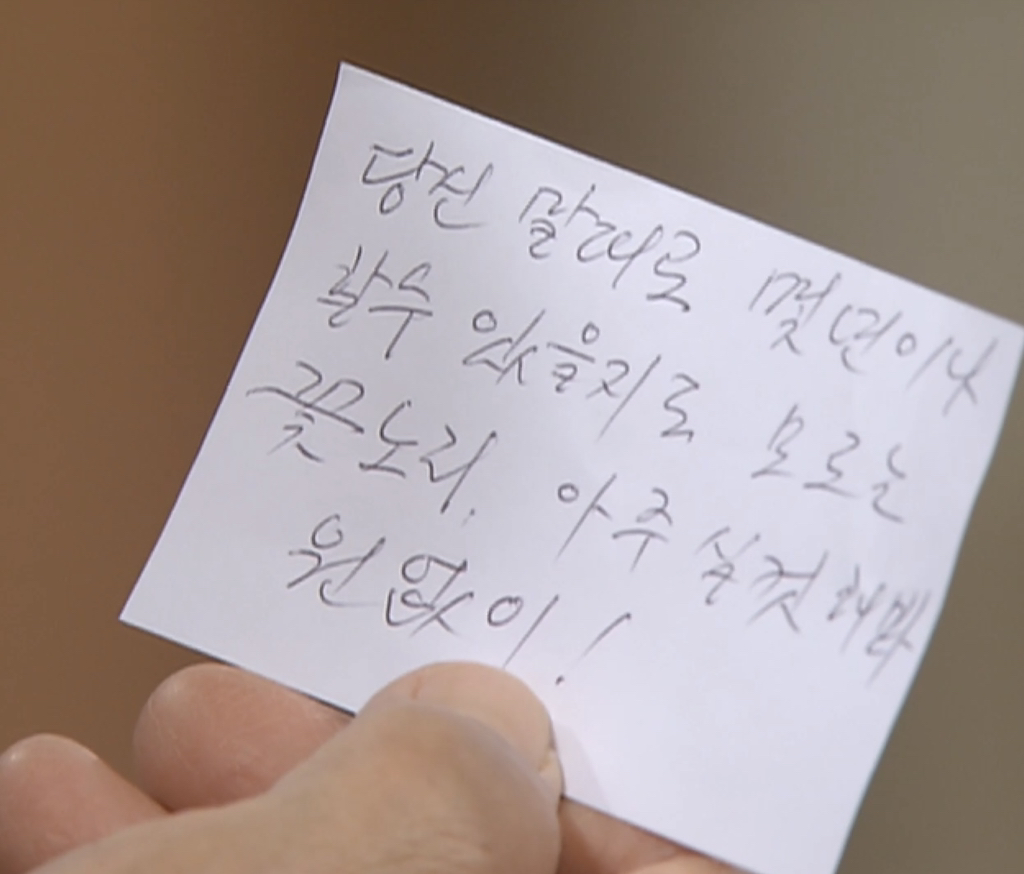 당신 말대로 몇번이나
할수 있을지도 모르는
꽃노리. 아주 실컷 해봐
원없이!